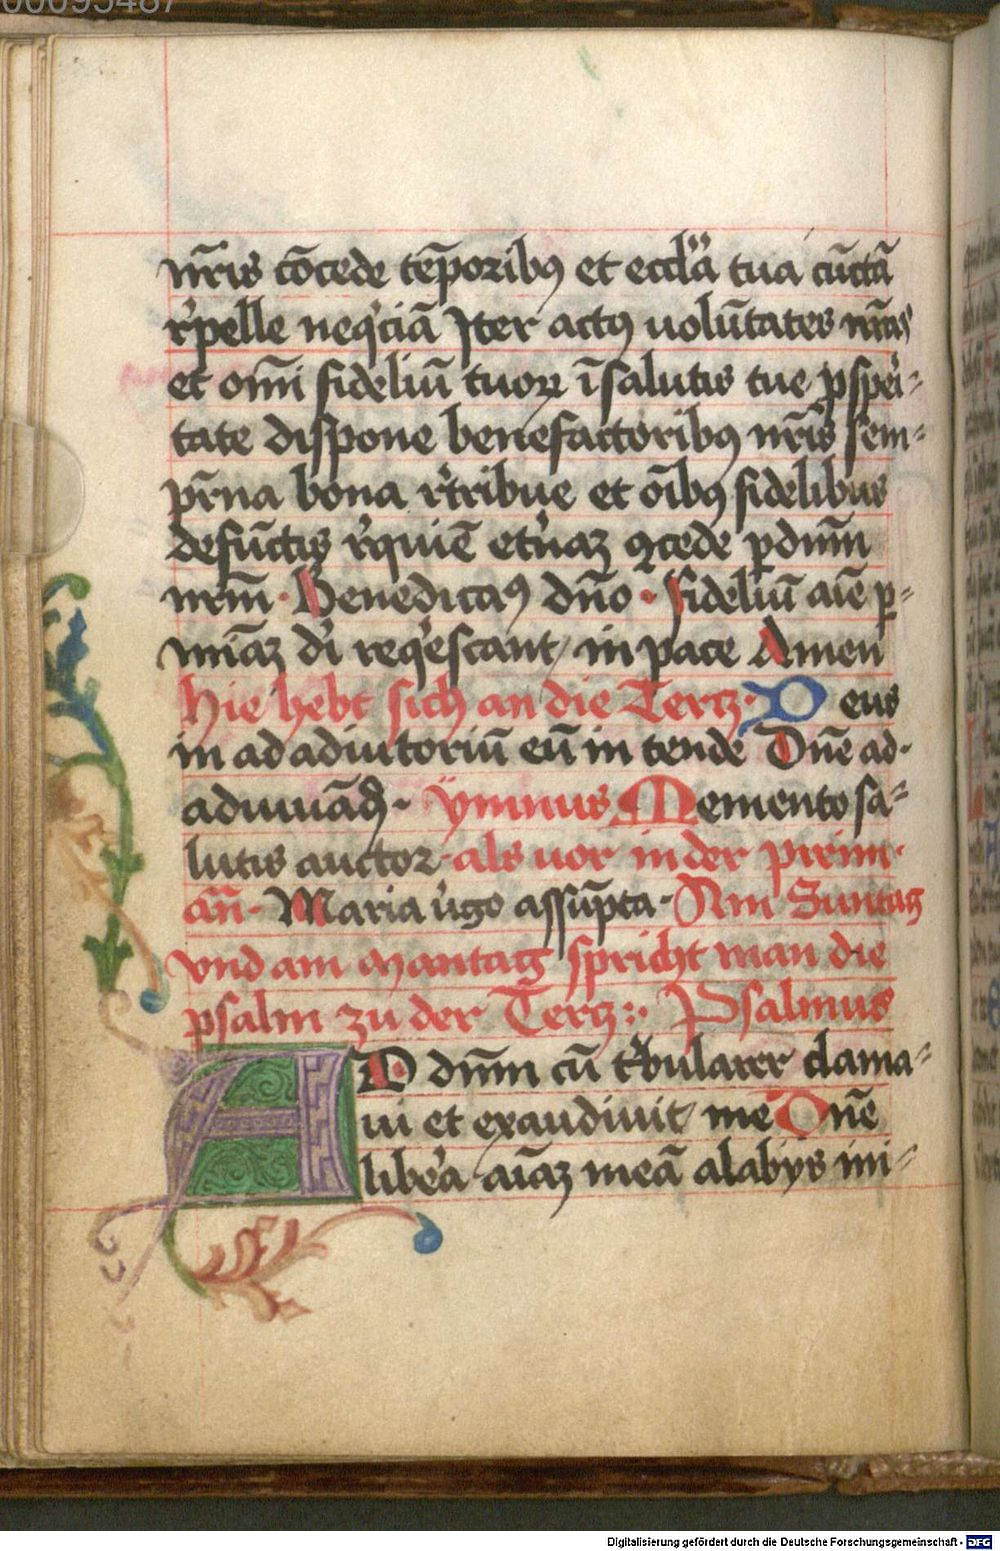 00095487
nr̄is cōcede tēporibꝰ et eccl̄ia tua cūctā
r̓pelle neq̓ciā Iter actꝰ uolūtates nr̄as
et om̄i fideliū tuoꝝ ī salutis tue ꝓspei-
tate dispone benefactoribꝰ nr̄is sem-
pr̄na bona r̓tribue et ōibꝰ fidelibus
defūctis r̓quiē et̓naꝫ ꝯcede p̲ dn̄m
nrm̄ · Benedicaꝰ dn̄o · fideliū aīe p̲-
miāꝫ dī req̓escant in pace Amen
hie hebt sich an die Tertz · Deus
in ad adiutoriū eū in tende Dn̄e ad-
adiuuād̄ · ymnus Memento sa-
lutis auctor · als uor in der preim ·
an̄ · Maria ūgo assūpta · Am Suntag
vnd am Mantag spricht man die
psalm zu der Tertz : · Psalmus
AD dn̄m cū t̓bularer clama-
ui et exaudiuit me Dn̄e
libe̓a aīaꝫ meā a labijs ini-
Digitalisierung gefördert durch die Deutsche Forschungsgemeinschaft - DFG